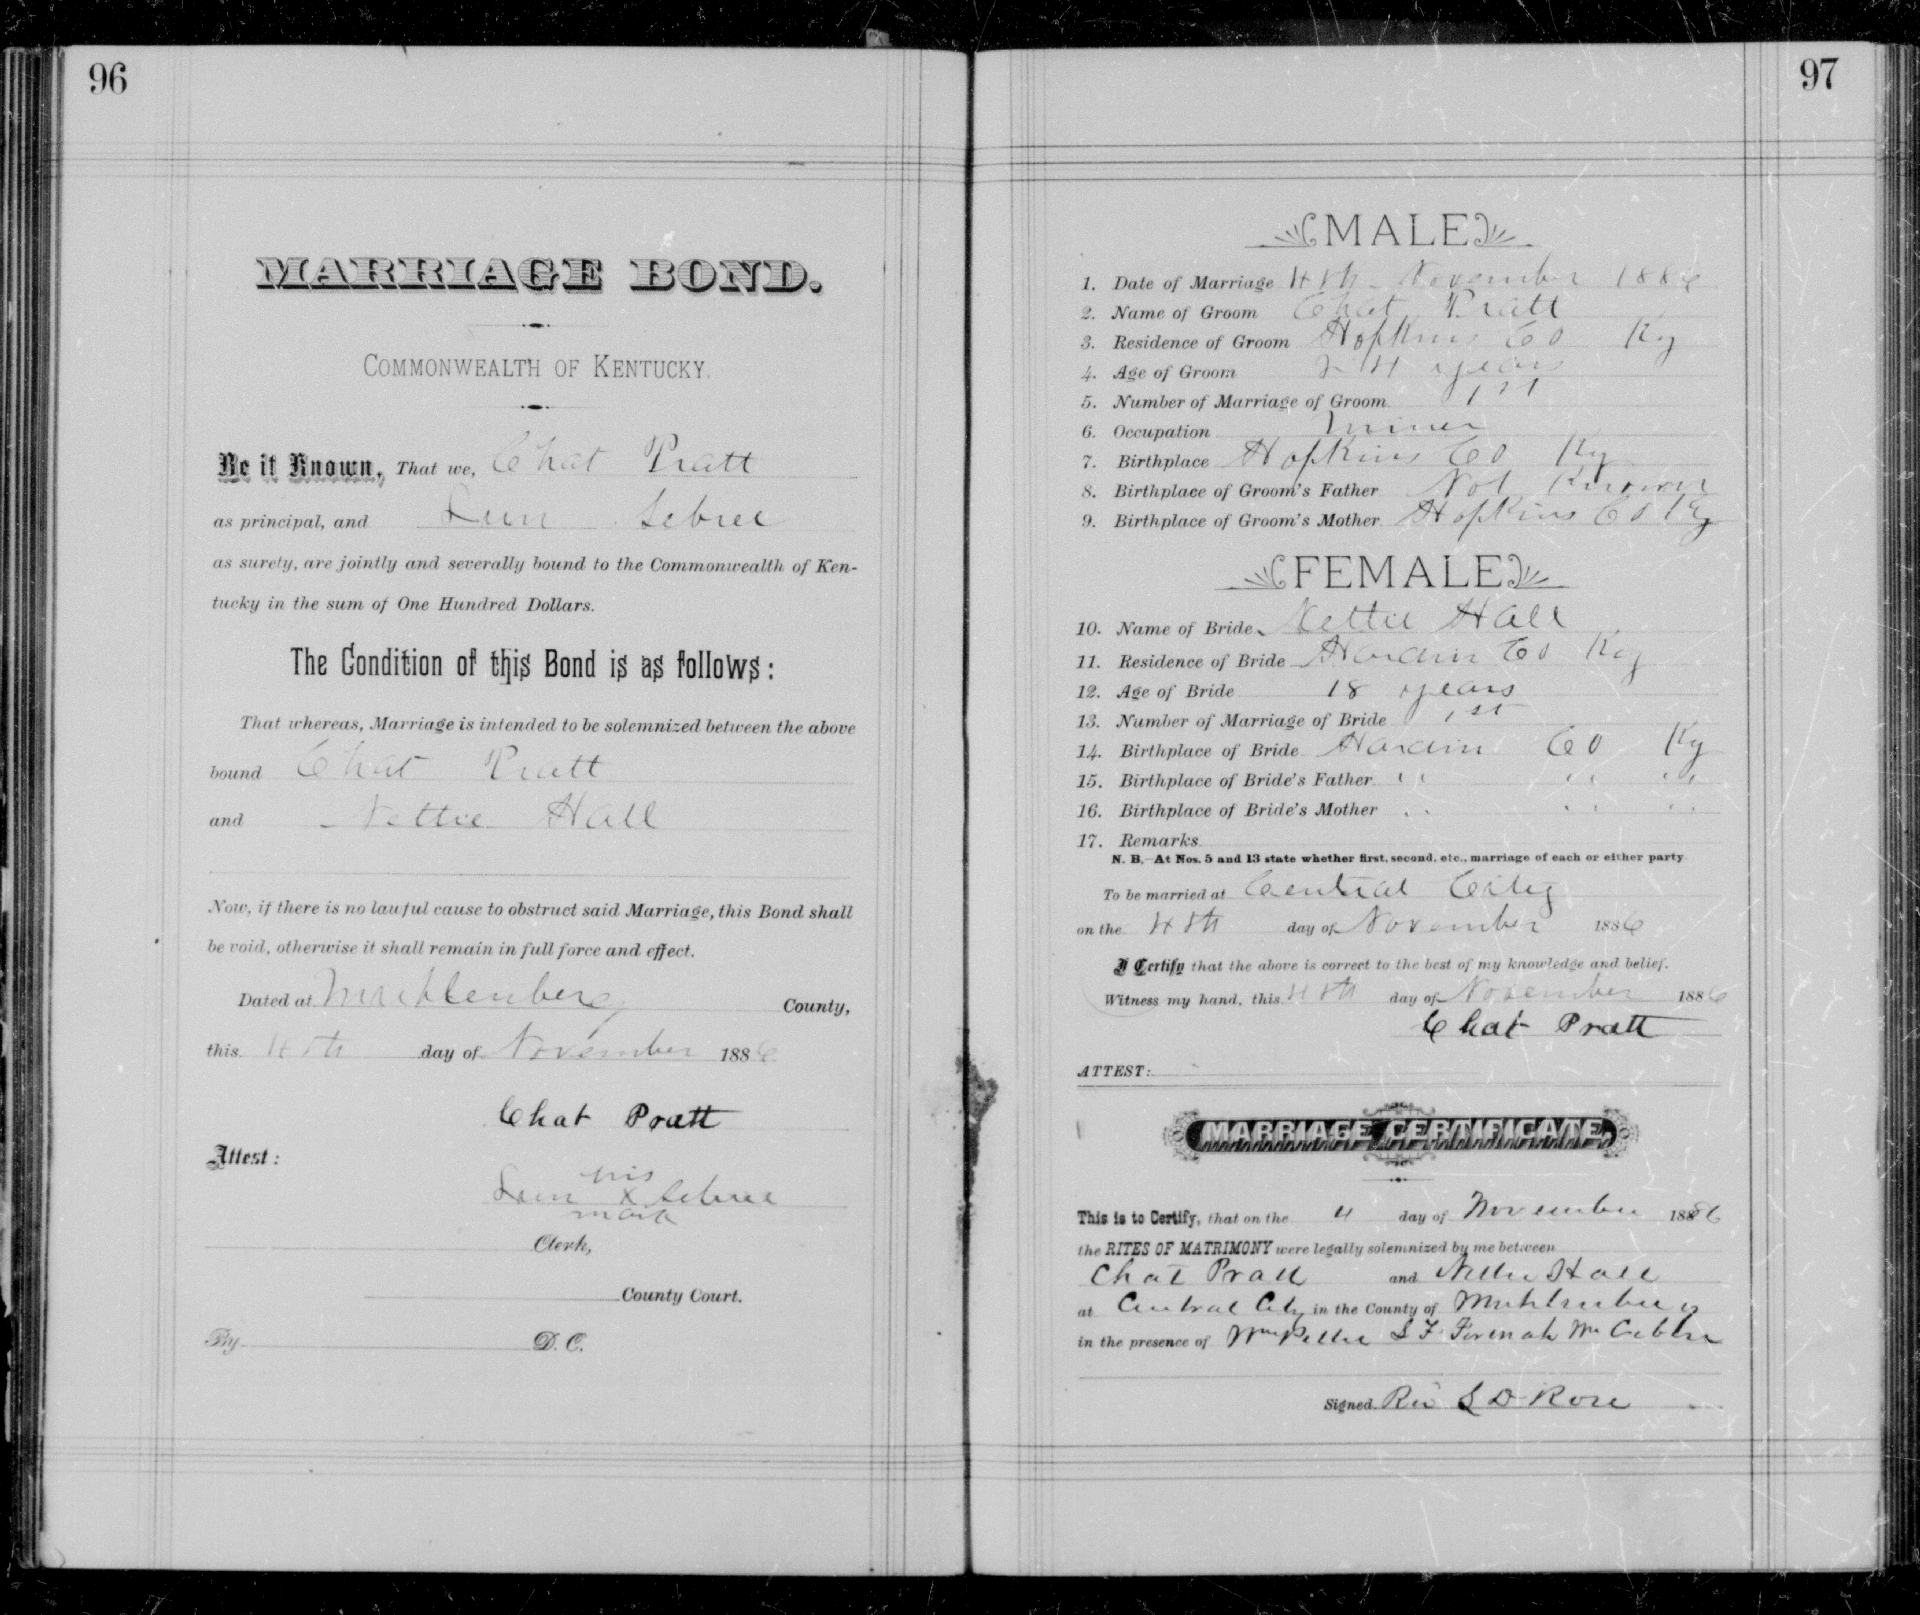 96
MARRIAGE BOND.
COMMONWEALTH OF KENTUCKY.
Be it Known, That we, Chat Pratt
as principal, and Lun Sebree
as surety, are jointly and severally bound to the Commonwealth of Ken-
tucky in the sum of One Hundred Dollars.
The Condition of this Bond is as follows:
That whereas, Marriage is intended to be solemnized between the above
bound Chat Pratt
and Nettie Hall
Now, if there is no lawful cause to obstruct said Marriage, this Bond shall
be void, otherwise it shall remain in full force and effect.
Dated at Muhlenberg County,
this 4th day of November 1886
Chat Pratt
Attest:
his
Lun X Sebree
mark
Clerk,
County Court.
By D. C.
97
MALE
1. Date of Marriage 4th November 1886
2. Name of Groom Chat Pratt
3. Residence of Groom Hopkins Co Ky
4. Age of Groom 24 years
5. Number of Marriage of Groom 1st
6. Occupation Miner
7. Birthplace Hopkins Co Ky
8. Birthplace of Groom's Father Not Known
9. Birthplace of Groom's Mother Hopkins Co Ky
FEMALE
10. Name of Bride Nettie Hall
11. Residence of Bride Hardin Co Ky
12. Age of Bride 18 years
13. Number of Marriage of Bride 1st
14. Birthplace of Bride Hardin Co Ky
15. Birthplace of Bride's Father " " "
16. Birthplace of Bride's Mother " " "
17. Remarks
N. B.—At Nos. 5 and 13 state whether first, second, etc., marriage of each or either party
To be married at Central City
on the 4th day of November 1886
I Certify that the above is correct to the best of my knowledge and belief.
Witness my hand, this 4th day of November 1886
Chat Pratt
ATTEST:
MARRIAGE CERTIFICATE
This is to Certify, that on the 4 day of November 1886
the RITES OF MATRIMONY were legally solemnized by me between
Chat Pratt and Nettie Hall
at Central City in the County of Muhlenberg
in the presence of Wm S F
Signed Rev S D Rose